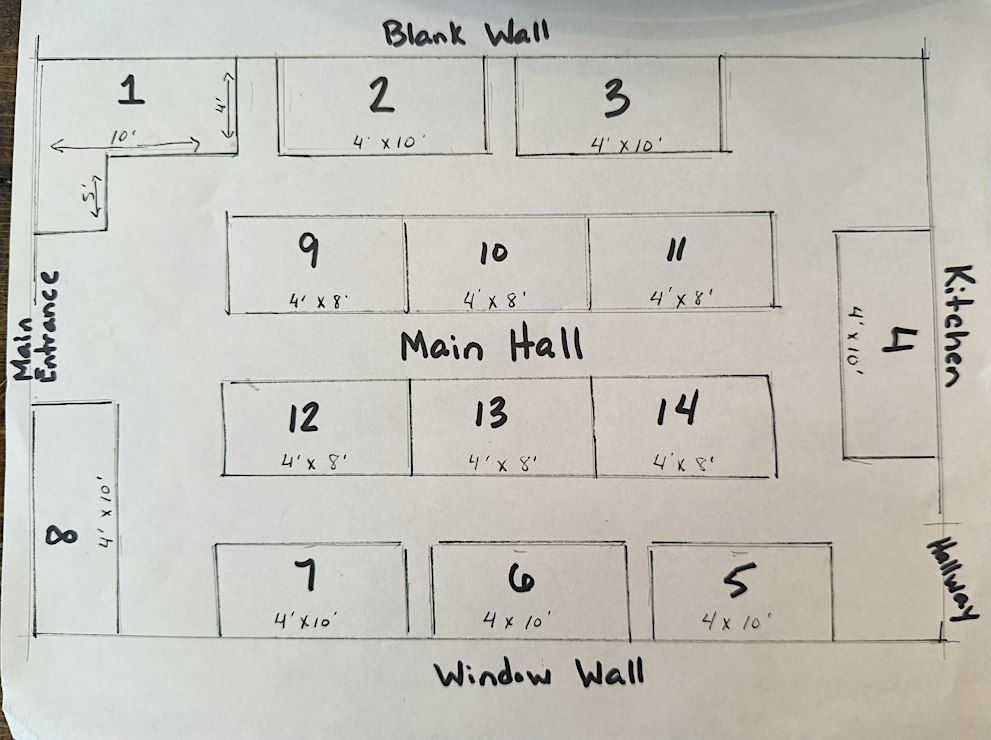 Blank Wall
1
4'
10'
5'
2
4' x 10'
3
4' x 10'
9
4' x 8'
10
4' x 8'
11
4' x 8'
Main
Entrance
Main Hall
4
4' x 10'
Kitchen
12
4' x 8'
13
4' x 8'
14
4' x 8'
8
4' x 10'
7
4' x 10'
6
4 x 10'
5
4 x 10'
Hallway
Window Wall